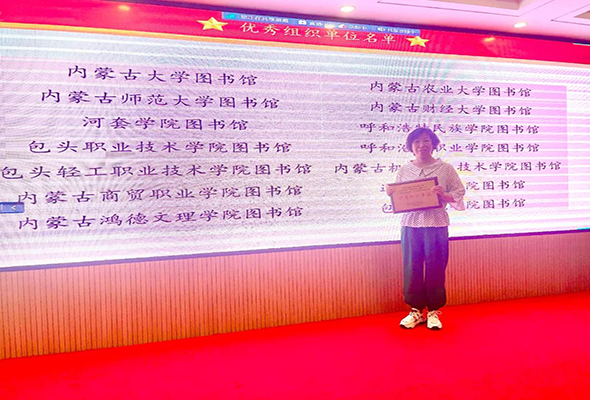 优秀组织单位名单
内蒙古大学图书馆
内蒙古师范大学图书馆
河套学院图书馆
包头职业技术学院图书馆
包头轻工职业技术学院图书馆
内蒙古商贸职业学院图书馆
内蒙古鸿德文理学院图书馆
内蒙古农业大学图书馆
内蒙古财经大学图书馆
呼和浩特民族学院图书馆
呼和浩 职业学院图书馆
内蒙古机 技术学院图书馆
学院图书馆
包 学院图书馆